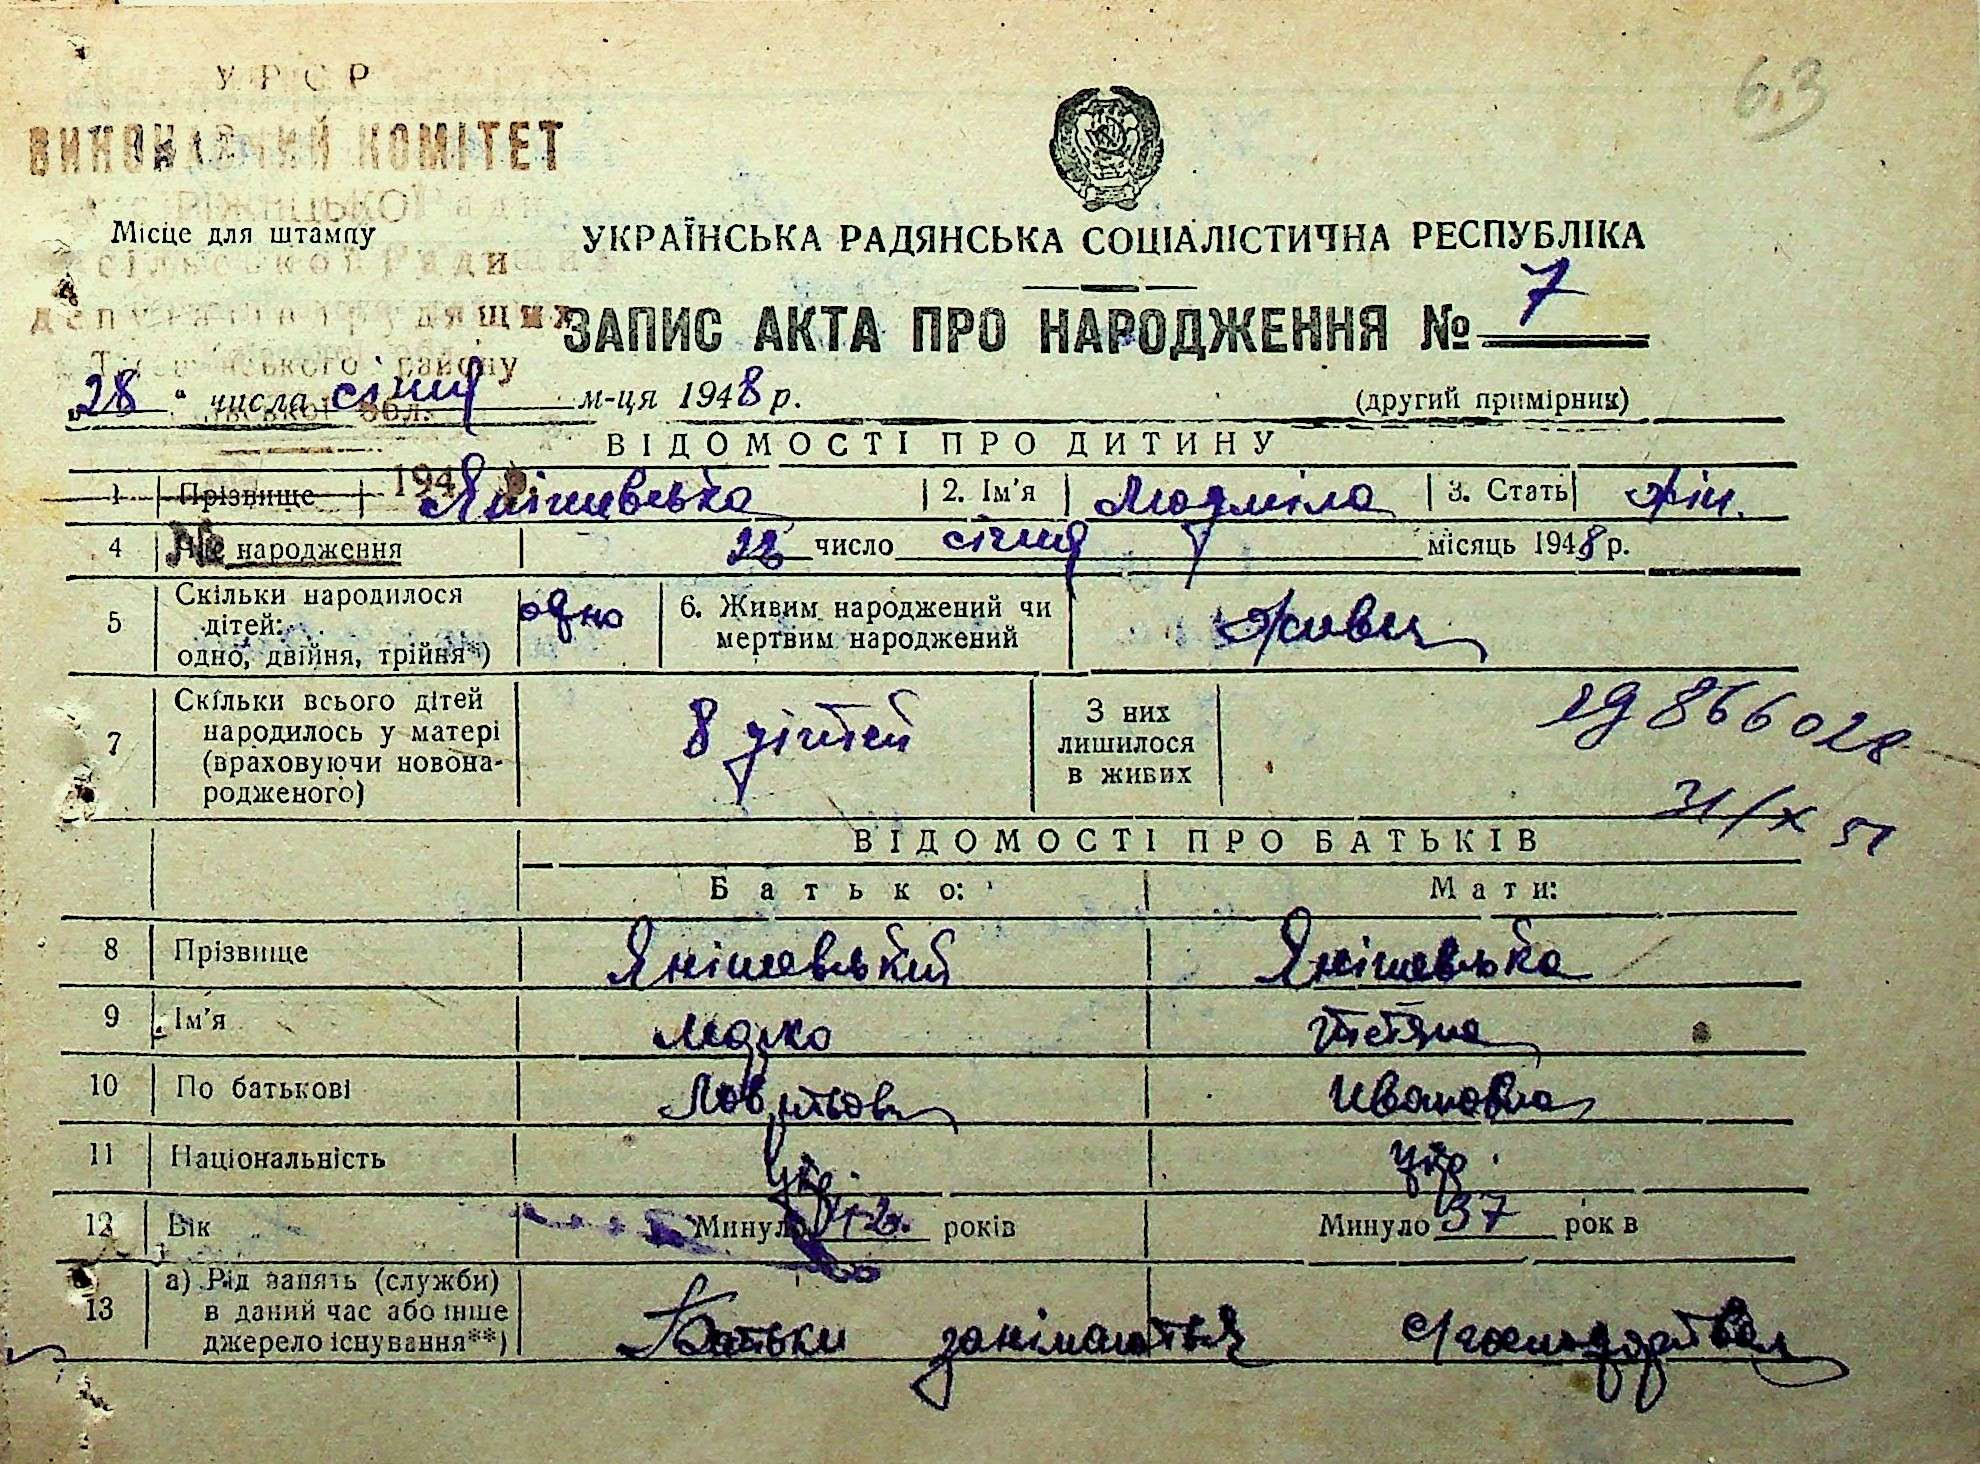 УРСР
63
ВИКОНАВЧИЙ КОМІТЕТ
Місце для штампу
УКРАЇНСЬКА РАДЯНСЬКА СОЦІАЛІСТИЧНА РЕСПУБЛІКА
сільської Ради
депутатів трудящих
ЗАПИС АКТА ПРО НАРОДЖЕННЯ № 7
району
„28“ числа січня м-ця 1948 р.
(другий примірник)
обл.
ВІДОМОСТІ ПРО ДИТИНУ
194 р.
1 Прізвище Янішевська 2. Ім'я Людміла 3. Стать жін.
4 № народження число січня місяць 1948 р.
5 Скільки народилося дітей: одно, двійня, трійня*) одно 6. Живим народжений чи мертвим народжений живим
7 Скільки всього дітей народилось у матері (враховуючи новонародженого) 8 дітей З них лишилося в живих
866028
31/X 51
ВІДОМОСТІ ПРО БАТЬКІВ
Батько: Мати:
8 Прізвище Янішевський Янішевська
9 Ім'я Марко Тетяна
10 По батькові Ивановна
11 Національність укр. укр.
12 Вік Минуло 42 років Минуло 37 років
13 а) Рід занять (служби) в даний час або інше джерело існування**) Батьки занімаються с/господарством